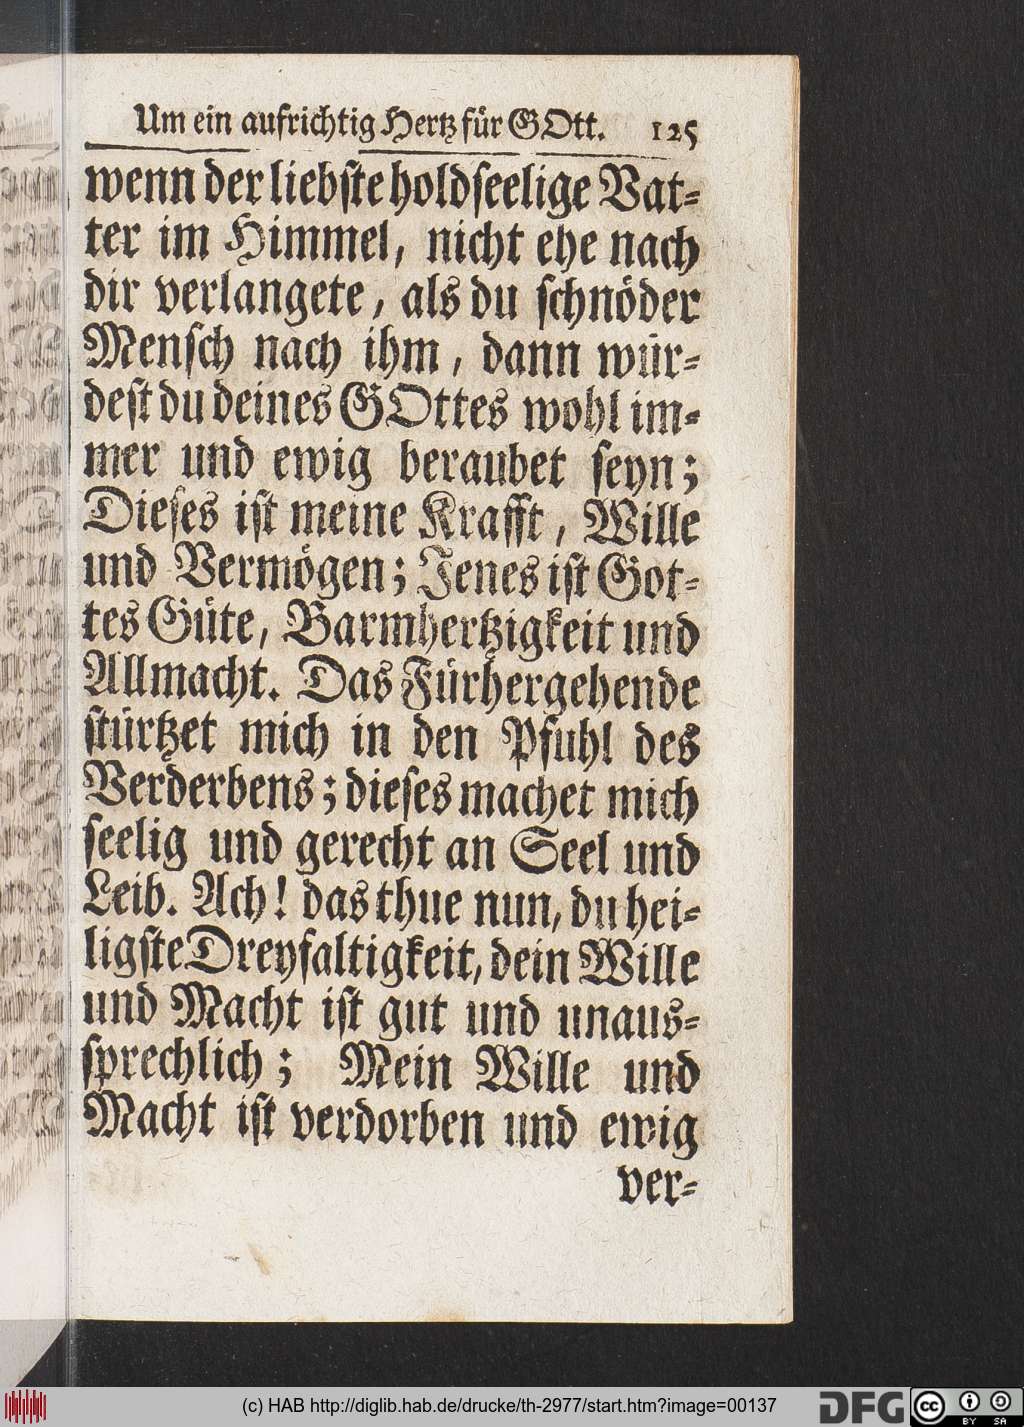 Um ein aufrichtig Hertz für GOtt. 125
wenn der liebste holdseelige Vat-
ter im Himmel, nicht ehe nach
dir verlangete, als du schnöder
Mensch nach ihm, dann wür-
dest du deines GOttes wohl im-
mer und ewig beraubet seyn;
Dieses ist meine Krafft, Wille
und Vermögen; Jenes ist Got-
tes Güte, Barmhertzigkeit und
Allmacht. Das Fürhergehende
stürtzet mich in den Pfuhl des
Verderbens; dieses machet mich
seelig und gerecht an Seel und
Leib. Ach! das thue nun, du hei-
ligste Dreyfaltigkeit, dein Wille
und Macht ist gut und unaus-
sprechlich; Mein Wille und
Macht ist verdorben und ewig
ver-
(c) HAB http://diglib.hab.de/drucke/th-2977/start.htm?image=00137
DFG
cc BY SA